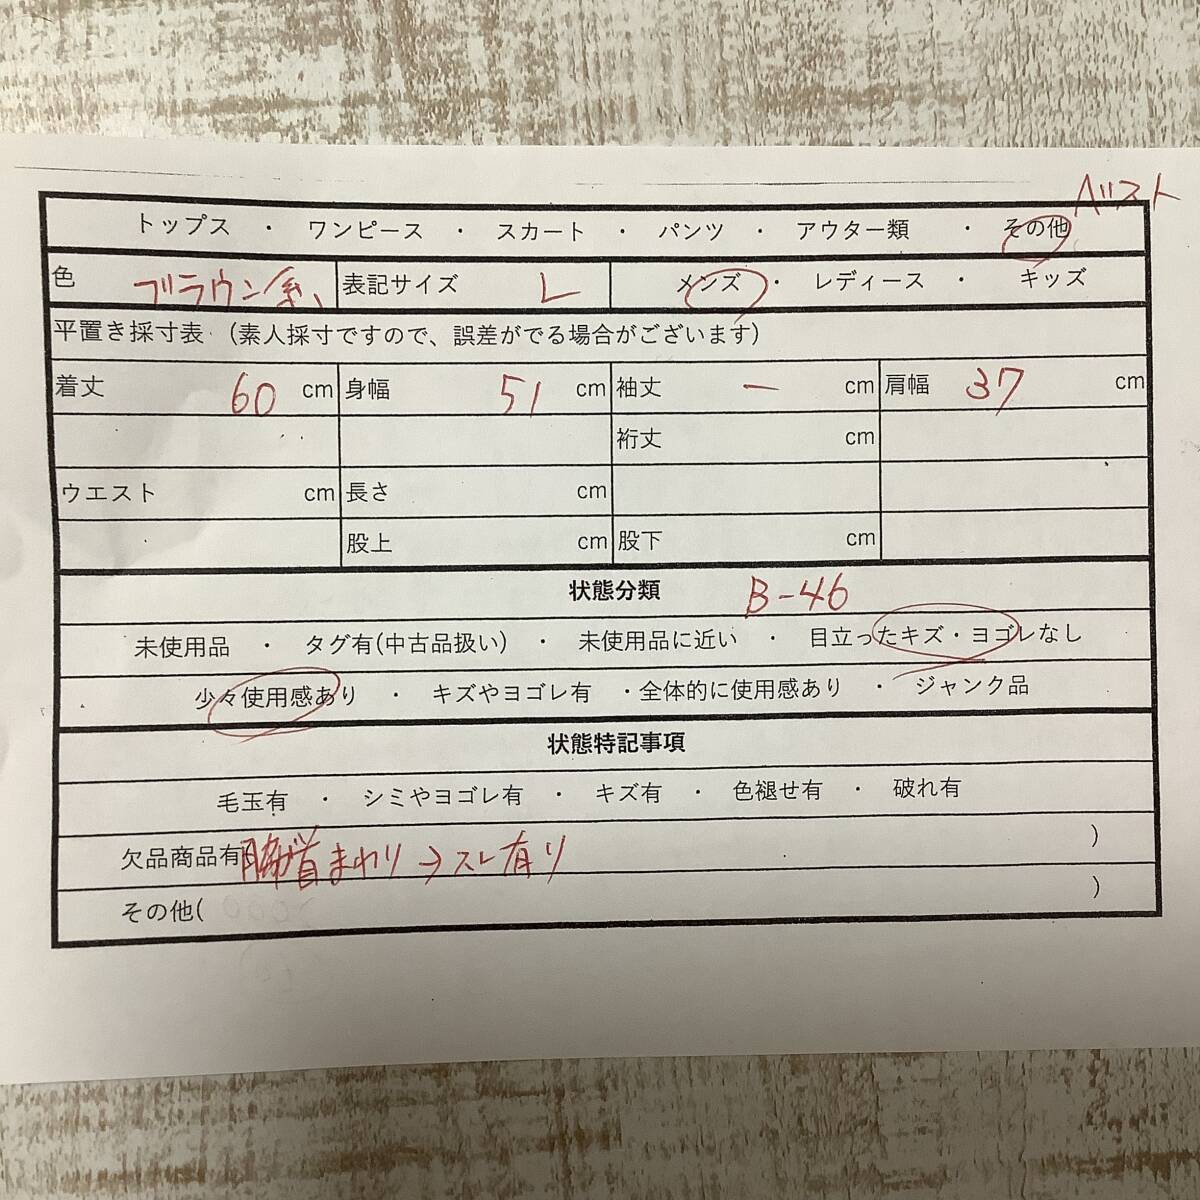 ベスト
トップス ・ ワンピース ・ スカート ・ パンツ ・ アウター類 ・ その他
色 ブラウン系、 表記サイズ L メンズ ・ レディース ・ キッズ
平置き採寸表 (素人採寸ですので、誤差がでる場合がございます)
着丈 60 cm 身幅 51 cm 袖丈 ー cm 肩幅 37 cm
裄丈 cm
ウエスト cm 長さ cm
股上 cm 股下 cm
状態分類 B-46
未使用品 ・ タグ有(中古品扱い) ・ 未使用品に近い ・ 目立ったキズ・ヨゴレなし
少々使用感あり ・ キズやヨゴレ有 ・全体的に使用感あり ・ ジャンク品
状態特記事項
毛玉有 ・ シミやヨゴレ有 ・ キズ有 ・ 色褪せ有 ・ 破れ有
欠品商品有( 首まわり→スレ有り )
その他( )